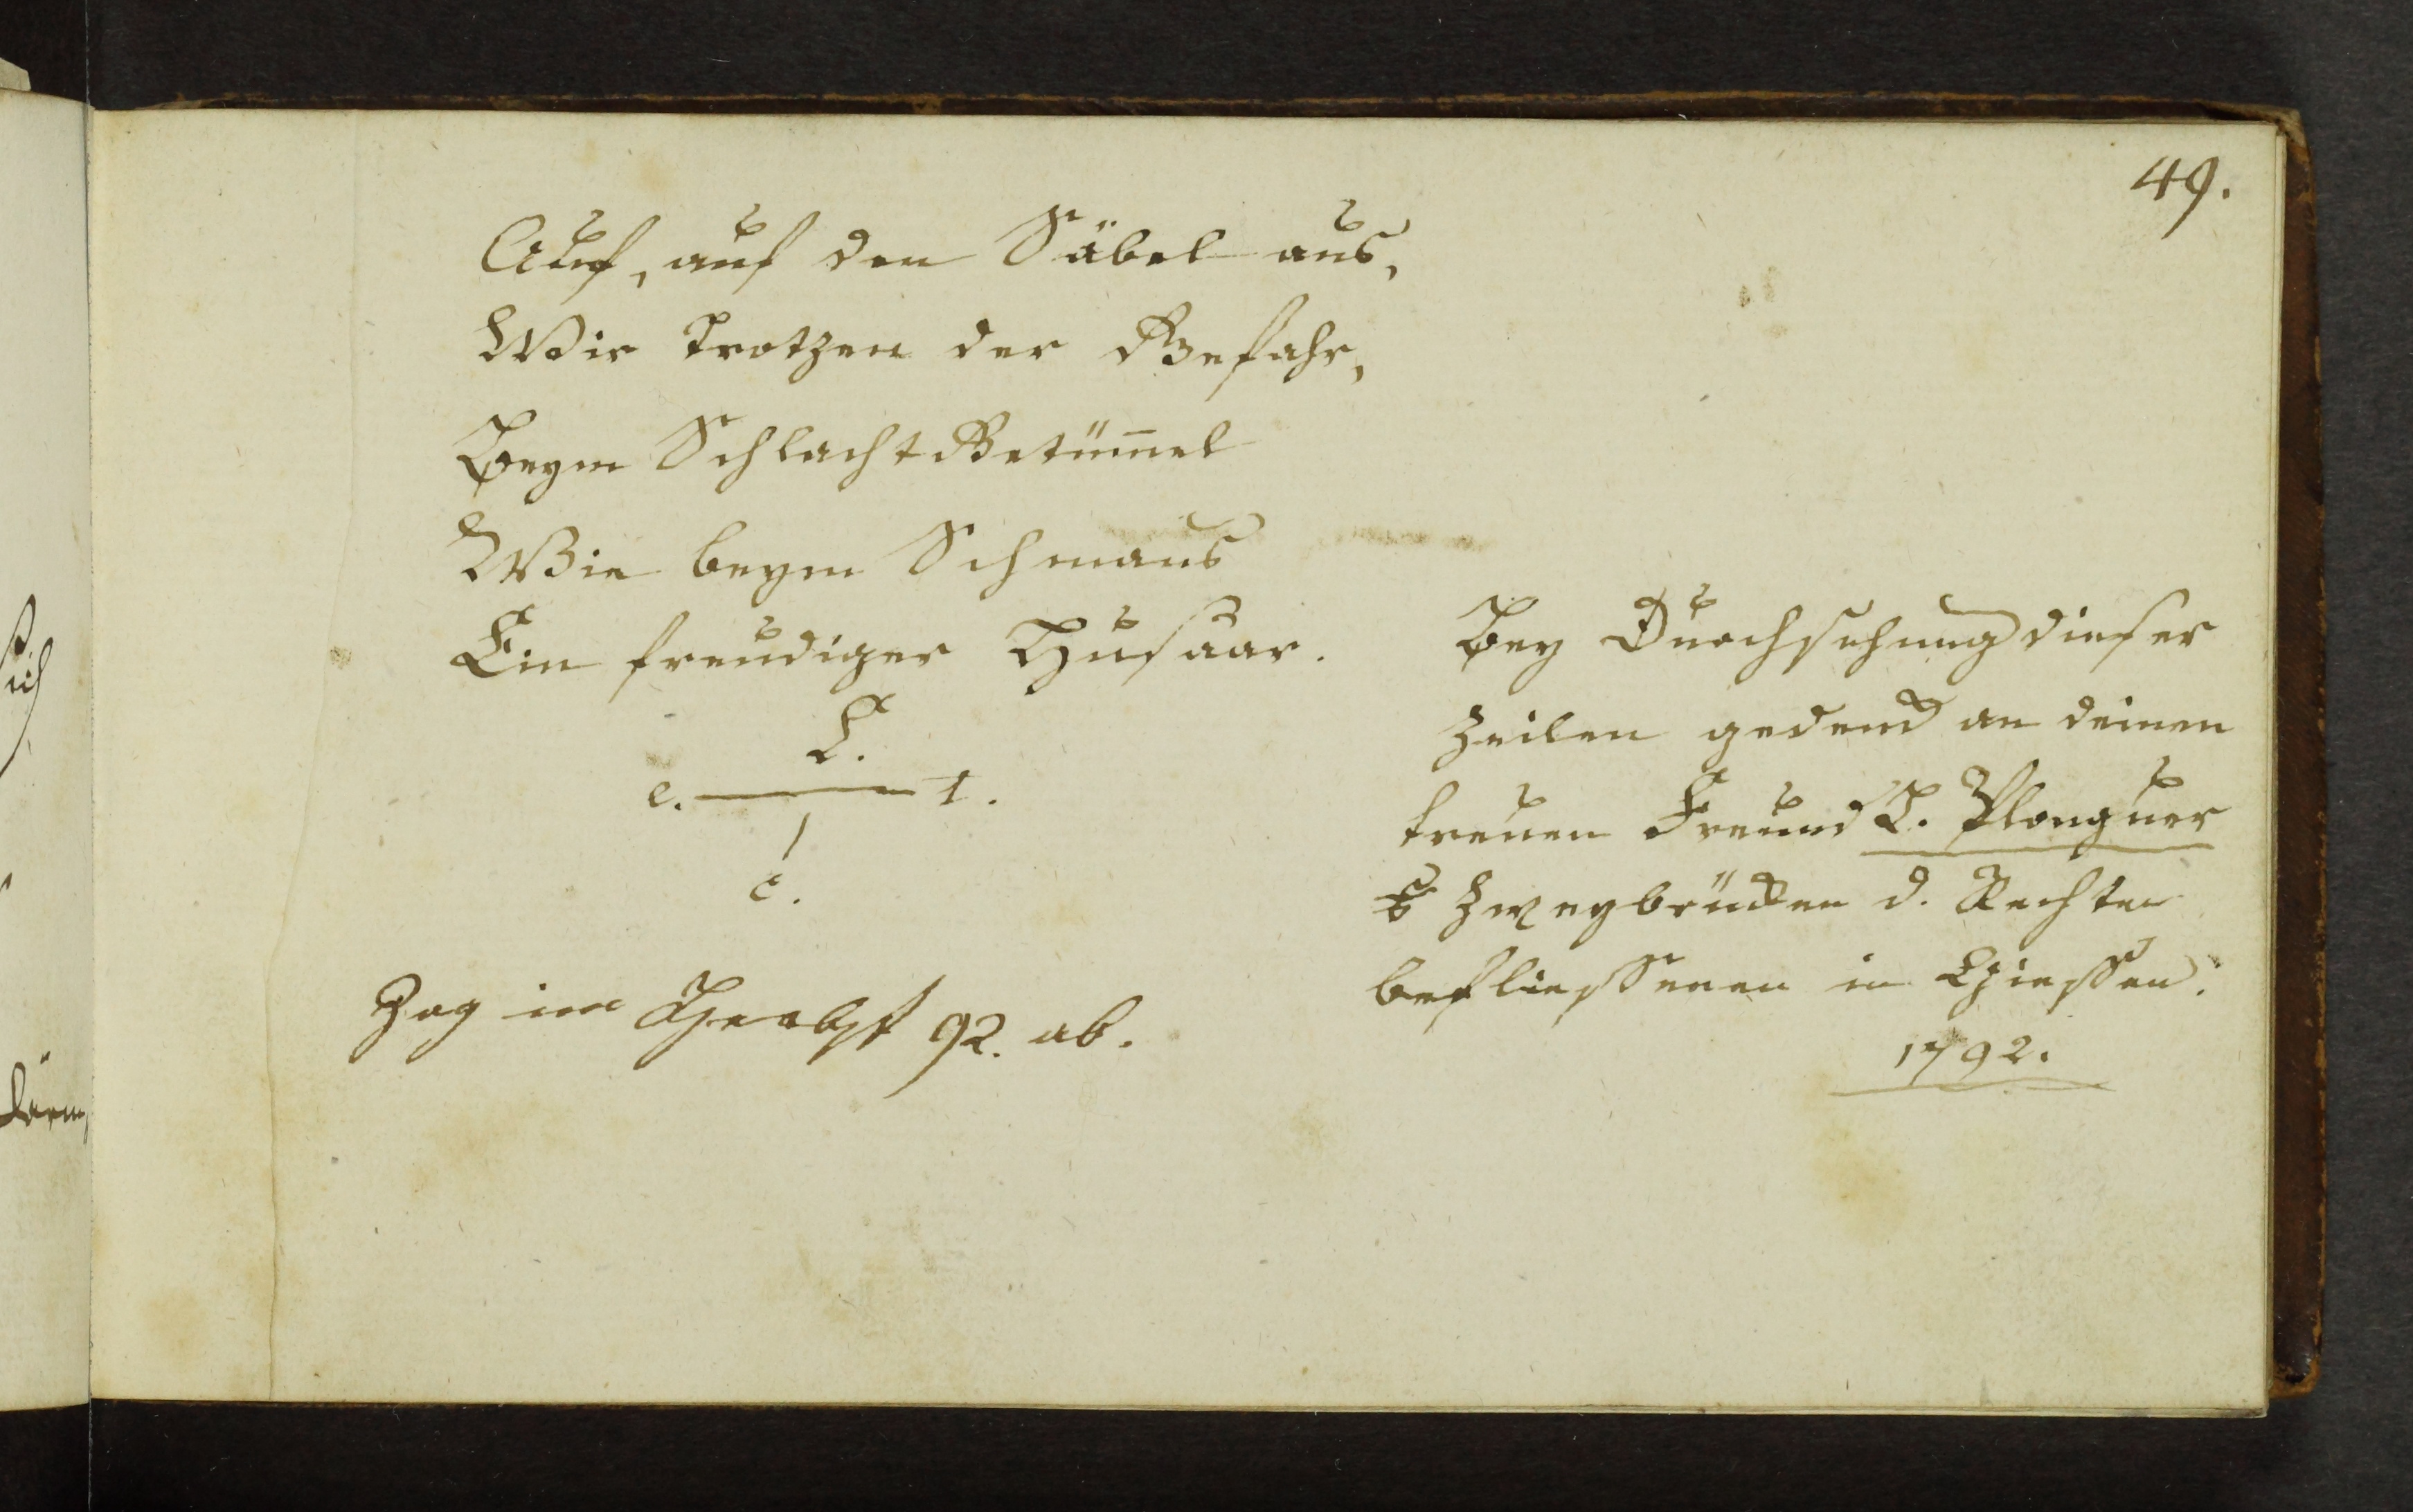 49.
Auf, auf den Säbel aus,
Wir trotzen der Gefahr,
Beym Schlacht Getüm̅el
Wie beym Schmaus
Ein freudiger Husaar.
E.
e. t.
c.
Zog im Herbst 92. ab.
Bey Durchsehung dieser
Zeilen gedenck an deinen
treuen Freund
Zweybrücken d. Rechten
befliessenen in Giessen.
1792.